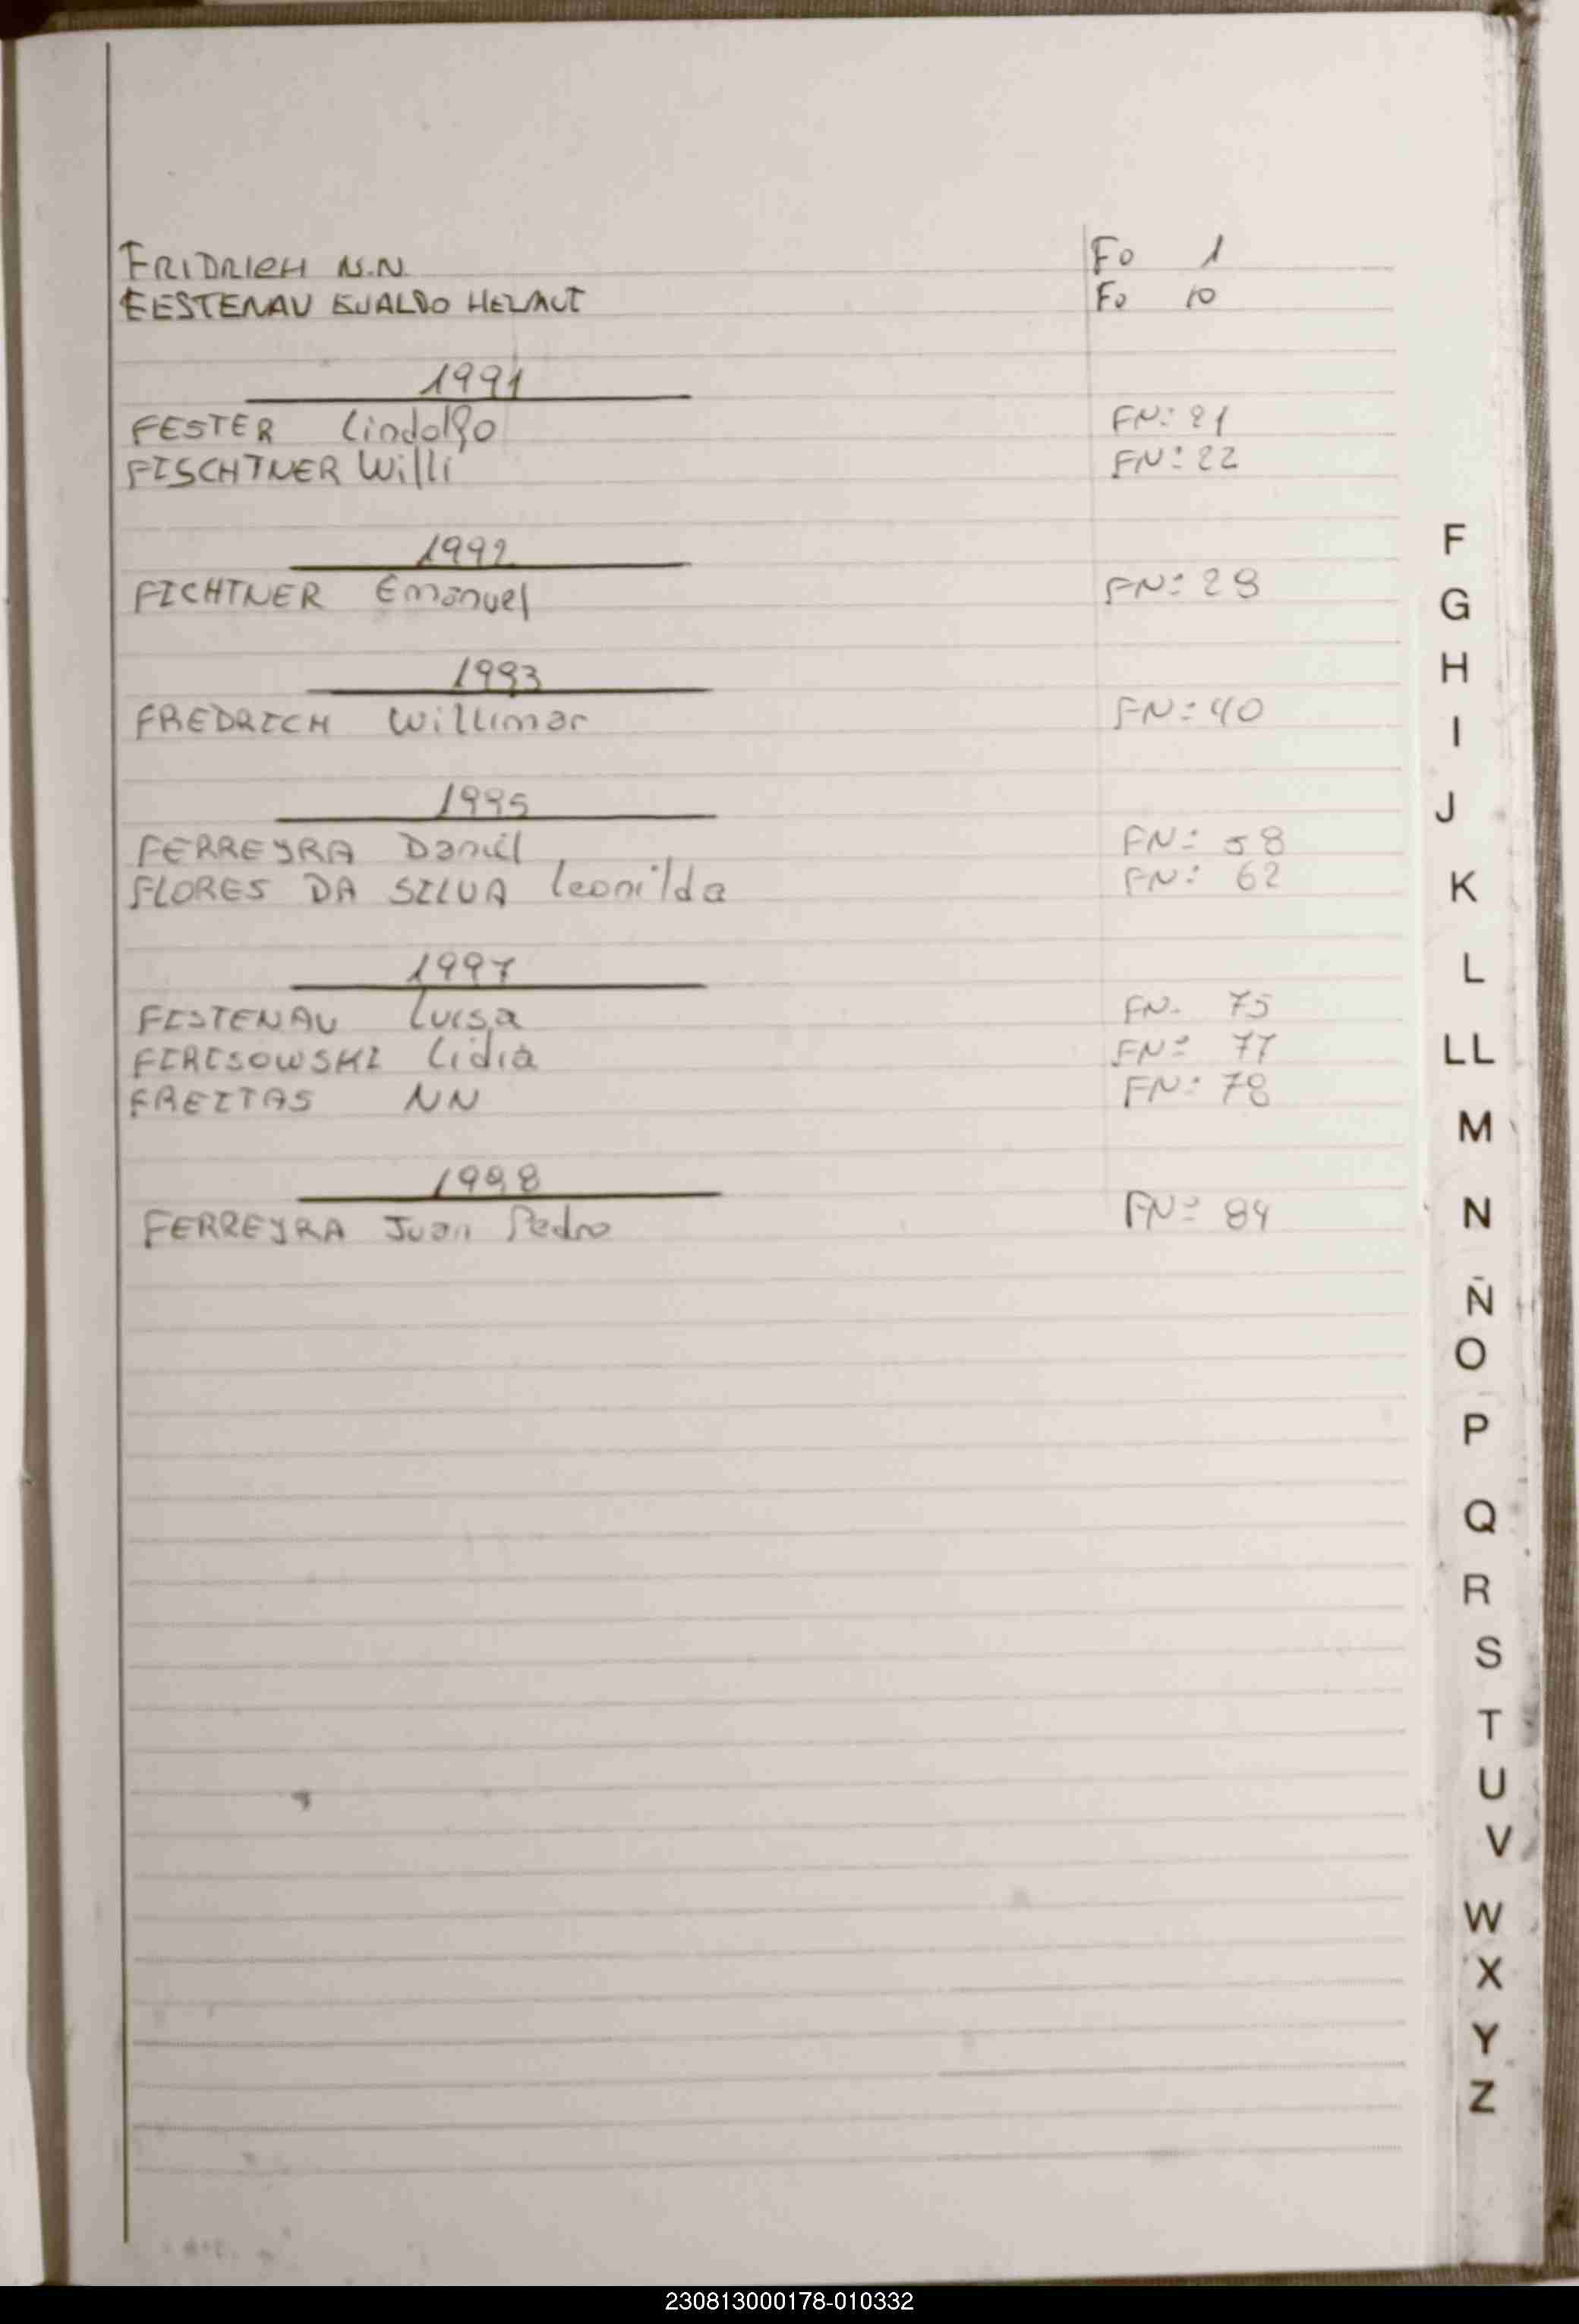 FRIDRICH N.N. Fo 1
FESTENAU EUALDO HELMUT Fo 10
1991
FESTER Lindolfo FN: 21
FISCHTNER Willi FN: 22
1992
FICHTNER Emanuel FN: 29
1993
FREDRICH Willimar FN: 40
1995
FERREYRA Daniel FN: 58
FLORES DA SILVA Leonilda FN: 62
1997
FESTENAU Luisa FN. 75
FIRISOWSKI Lidia FN: 77
FREITAS NN FN: 78
1998
FERREYRA Juan Pedro FN: 84
F
G
H
I
J
K
L
LL
M
N
Ñ
O
P
Q
R
S
T
U
V
W
X
Y
Z
230813000178-010332